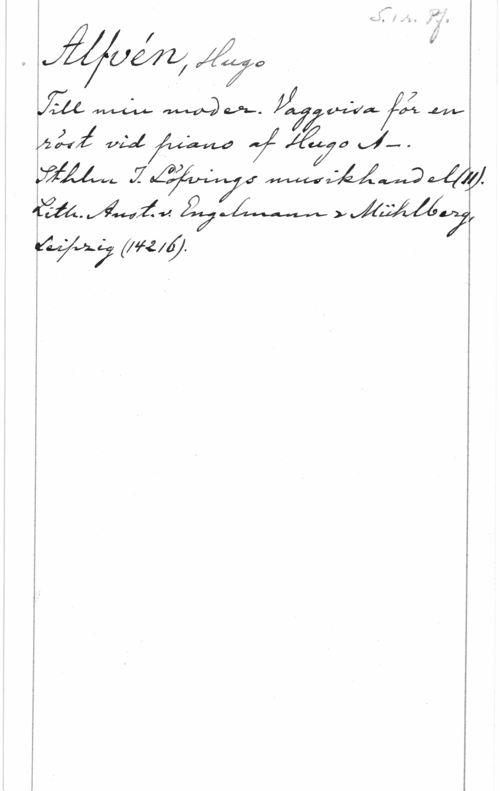 S. 1 r. Pf.
Alfvén, Hugo
Till min moder. Vaggvisa för en
röst vid piano af Hugo A-.
Sthlm J. Löfvings musikhandel (11).
Lith. Anst. v. Engelmann & Mühlberg,
Leipzig (14216).